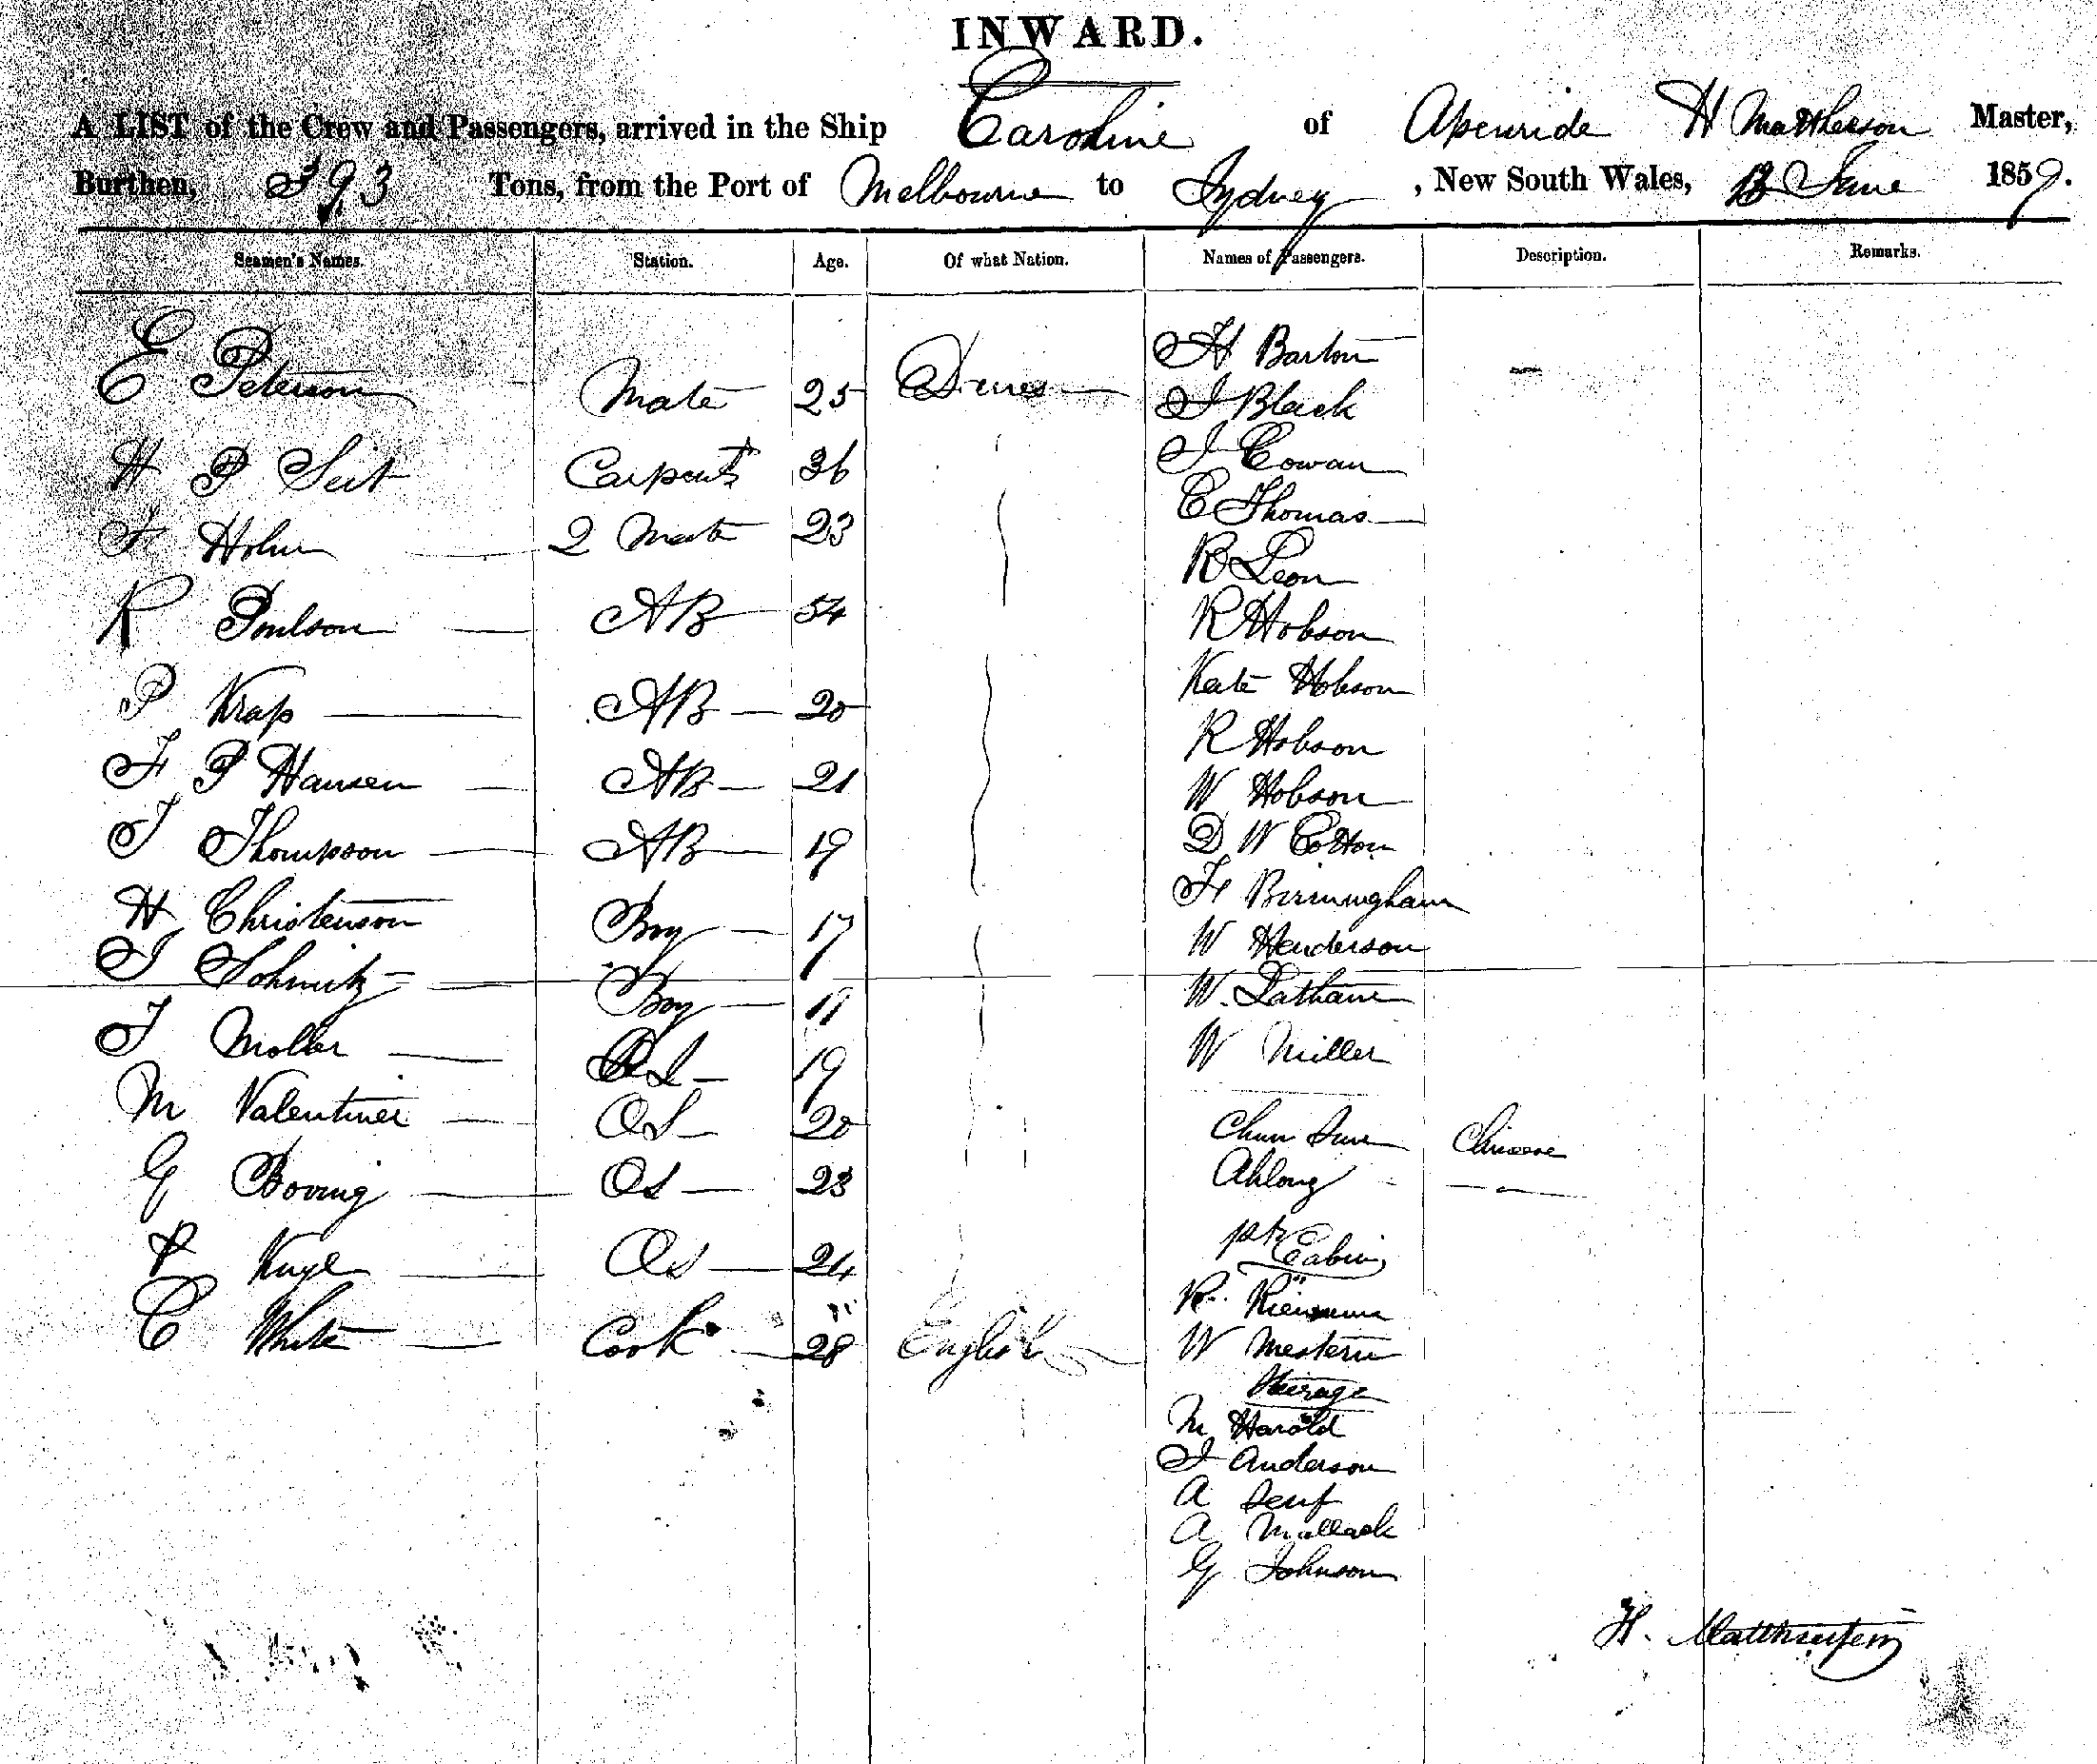 INWARD.
A LIST of the Crew and Passengers, arrived in the Ship Caroline of Apenride H Mattheson Master,
Burthen, 393 Tons, from the Port of Melbourne to Sydney, New South Wales, 13 June 1859.
Seamen's Names. Station. Age. Of what Nation. Names of Passengers. Description. Remarks.
E Peterson Mate 25 Danes H Barton
J Black
H P Seit Carpentr 36 J Cowan
F Holm 2 Mate 23 C Thomas
R Leon
R Poulson AB 54 R Hobson
Kate Hobson
P Krap AB 20 R Hobson
F P Hansen AB 21 W Hobson
J Thompson AB 19 D W Cotton
F Birmingham
H Christenson Boy 17 W Henderson
J Schmitz Boy W. Latham
J Moller OS 19 W Miller
M Valentiner OS 20 Chun Chinese
G Boving OS 23 Ahlong
P OS 24 pr Cabin
R.
C White Cook 28 English W Mestern
Steerage
M Harold
J Anderson
A
A Mallack
G Johnson
H. Matthiesen